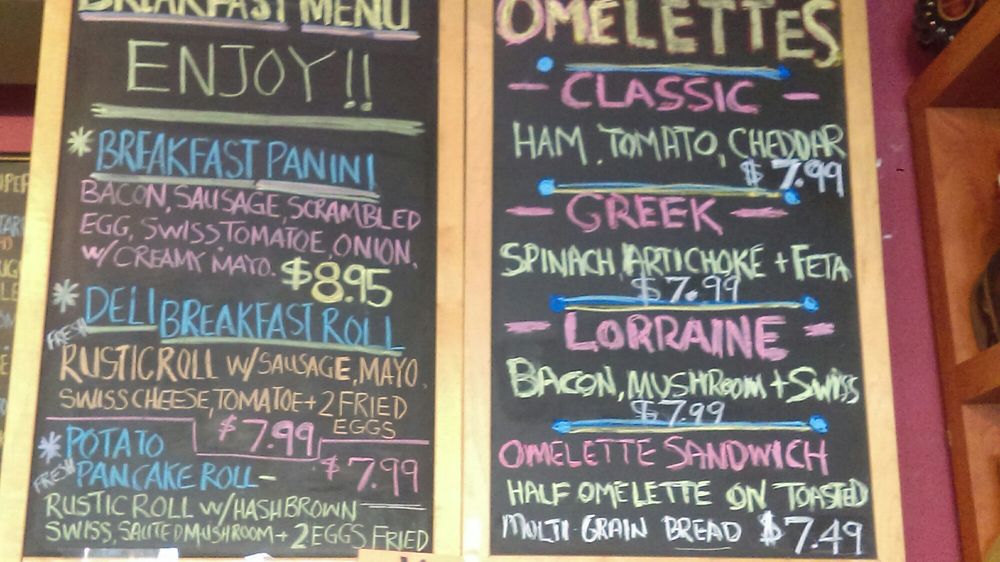 BREAKFAST MENU
ENJOY!!
* BREAKFAST PANINI
BACON, SAUSAGE, SCRAMBLED
EGG, SWISS TOMATOE, ONION,
W/ CREAMY MAYO. $8.95
* DELI BREAKFAST ROLL
FRESH
RUSTIC ROLL W/ SAUSAGE, MAYO,
SWISS CHEESE, TOMATOE + 2 FRIED
EGGS
$7.99
* POTATO
FRESH PANCAKE ROLL - $7.99
RUSTIC ROLL W/ HASHBROWN
SWISS, SAUTED MUSHROOM + 2 EGGS FRIED
OMELETTES
- CLASSIC -
HAM, TOMATO, CHEDDAR
$7.99
- GREEK -
SPINACH, ARTICHOKE + FETA
$7.99
- LORRAINE -
BACON, MUSHROOM + SWISS
$7.99
OMELETTE SANDWICH
HALF OMELETTE ON TOASTED
MULTI-GRAIN BREAD $7.49